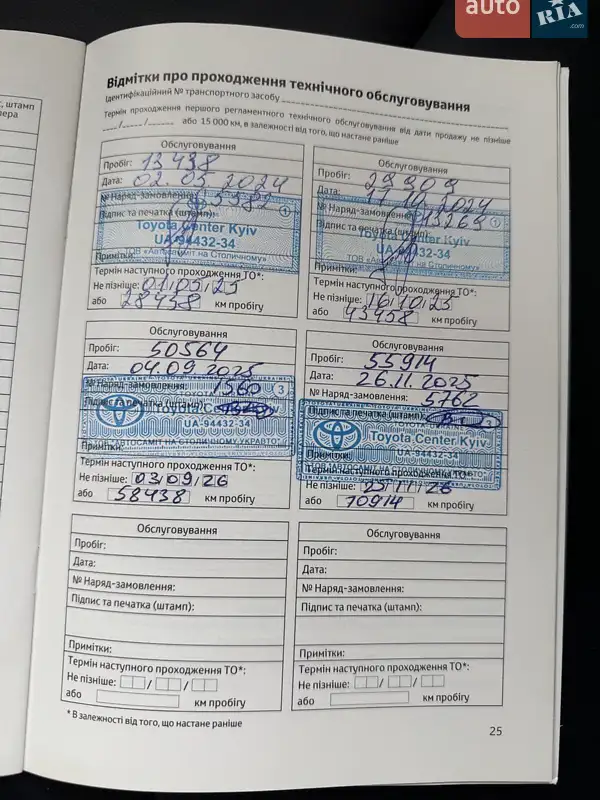 auto RIA.com
, штамп
лера
Відмітки про проходження технічного обслуговування
Ідентифікаційний № транспортного засобу
Термін проходження першого регламентного технічного обслуговування від дати продажу не пізніше
___/___/______ або 15 000 км, в залежності від того, що настане раніше
Обслуговування
Пробіг: 13438
Дата: 02.05.2024
№ Наряд-замовлення:
Підпис та печатка (штамп):
Toyota Center Kyiv
UA-94432-34
ТОВ «Автосаміт на Столичному»
Примітки:
Термін наступного проходження ТО*:
Не пізніше: 01/05/25
або 28438 км пробігу
Обслуговування
Пробіг: 29909
Дата: 17.10.2024
№ Наряд-замовлення: 13263
Підпис та печатка (штамп):
Toyota Center Kyiv
UA-94432-34
ТОВ «Автосаміт на Столичному»
Примітки:
Термін наступного проходження ТО*:
Не пізніше: 16/10/25
або 43458 км пробігу
Обслуговування
Пробіг: 50564
Дата: 04.09.2025
№ Наряд-замовлення: 1560
Підпис та печатка (штамп):
3
Toyota
UA-94432-34
ТОВ "АВТОСАМІТ НА СТОЛИЧНОМУ УКРАВТО"
Примітки:
Термін наступного проходження ТО*:
Не пізніше: 03/09/26
або 58438 км пробігу
Обслуговування
Пробіг: 55914
Дата: 26.11.2025
№ Наряд-замовлення: 5762
Підпис та печатка (штамп):
Toyota Center Kyiv
UA-94432-34
ТОВ "АВТОСАМІТ НА СТОЛИЧНОМУ УКРАВТО"
Примітки:
Термін наступного проходження ТО*:
Не пізніше: 25/11/26
або 70914 км пробігу
Обслуговування
Пробіг:
Дата:
№ Наряд-замовлення:
Підпис та печатка (штамп):
Примітки:
Термін наступного проходження ТО*:
Не пізніше: / /
або км пробігу
Обслуговування
Пробіг:
Дата:
№ Наряд-замовлення:
Підпис та печатка (штамп):
Примітки:
Термін наступного проходження ТО*:
Не пізніше: / /
або км пробігу
* В залежності від того, що настане раніше
25